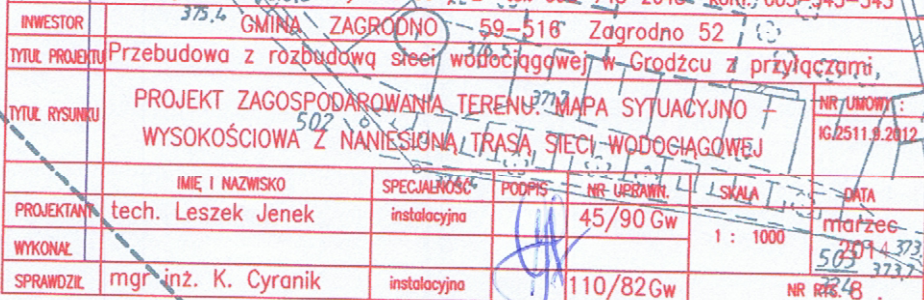 INWESTOR GMINA ZAGRODNO 59-516 Zagrodno 52
375,4
376,5
TYTUŁ PROJEKTU Przebudowa z rozbudową sieci wodociągowej w Grodźcu z przyłączami,
TYTUŁ RYSUNKU PROJEKT ZAGOSPODAROWANIA TERENU. MAPA SYTUACYJNO – NR UMOWY :
WYSOKOŚCIOWA Z NANIESIONĄ TRASĄ SIECI WODOCIĄGOWEJ IG.2511.9.2012
502
IMIĘ I NAZWISKO SPECJALNOŚĆ PODPIS NR UPRAWN. SKALA DATA
PROJEKTANT tech. Leszek Jenek instalacyjna 45/90 Gw 1 : 1000 marzec
WYKONAŁ 2014
503
373,7
SPRAWDZIŁ mgr inż. K. Cyranik instalacyjna 110/82Gw NR RYS. 8